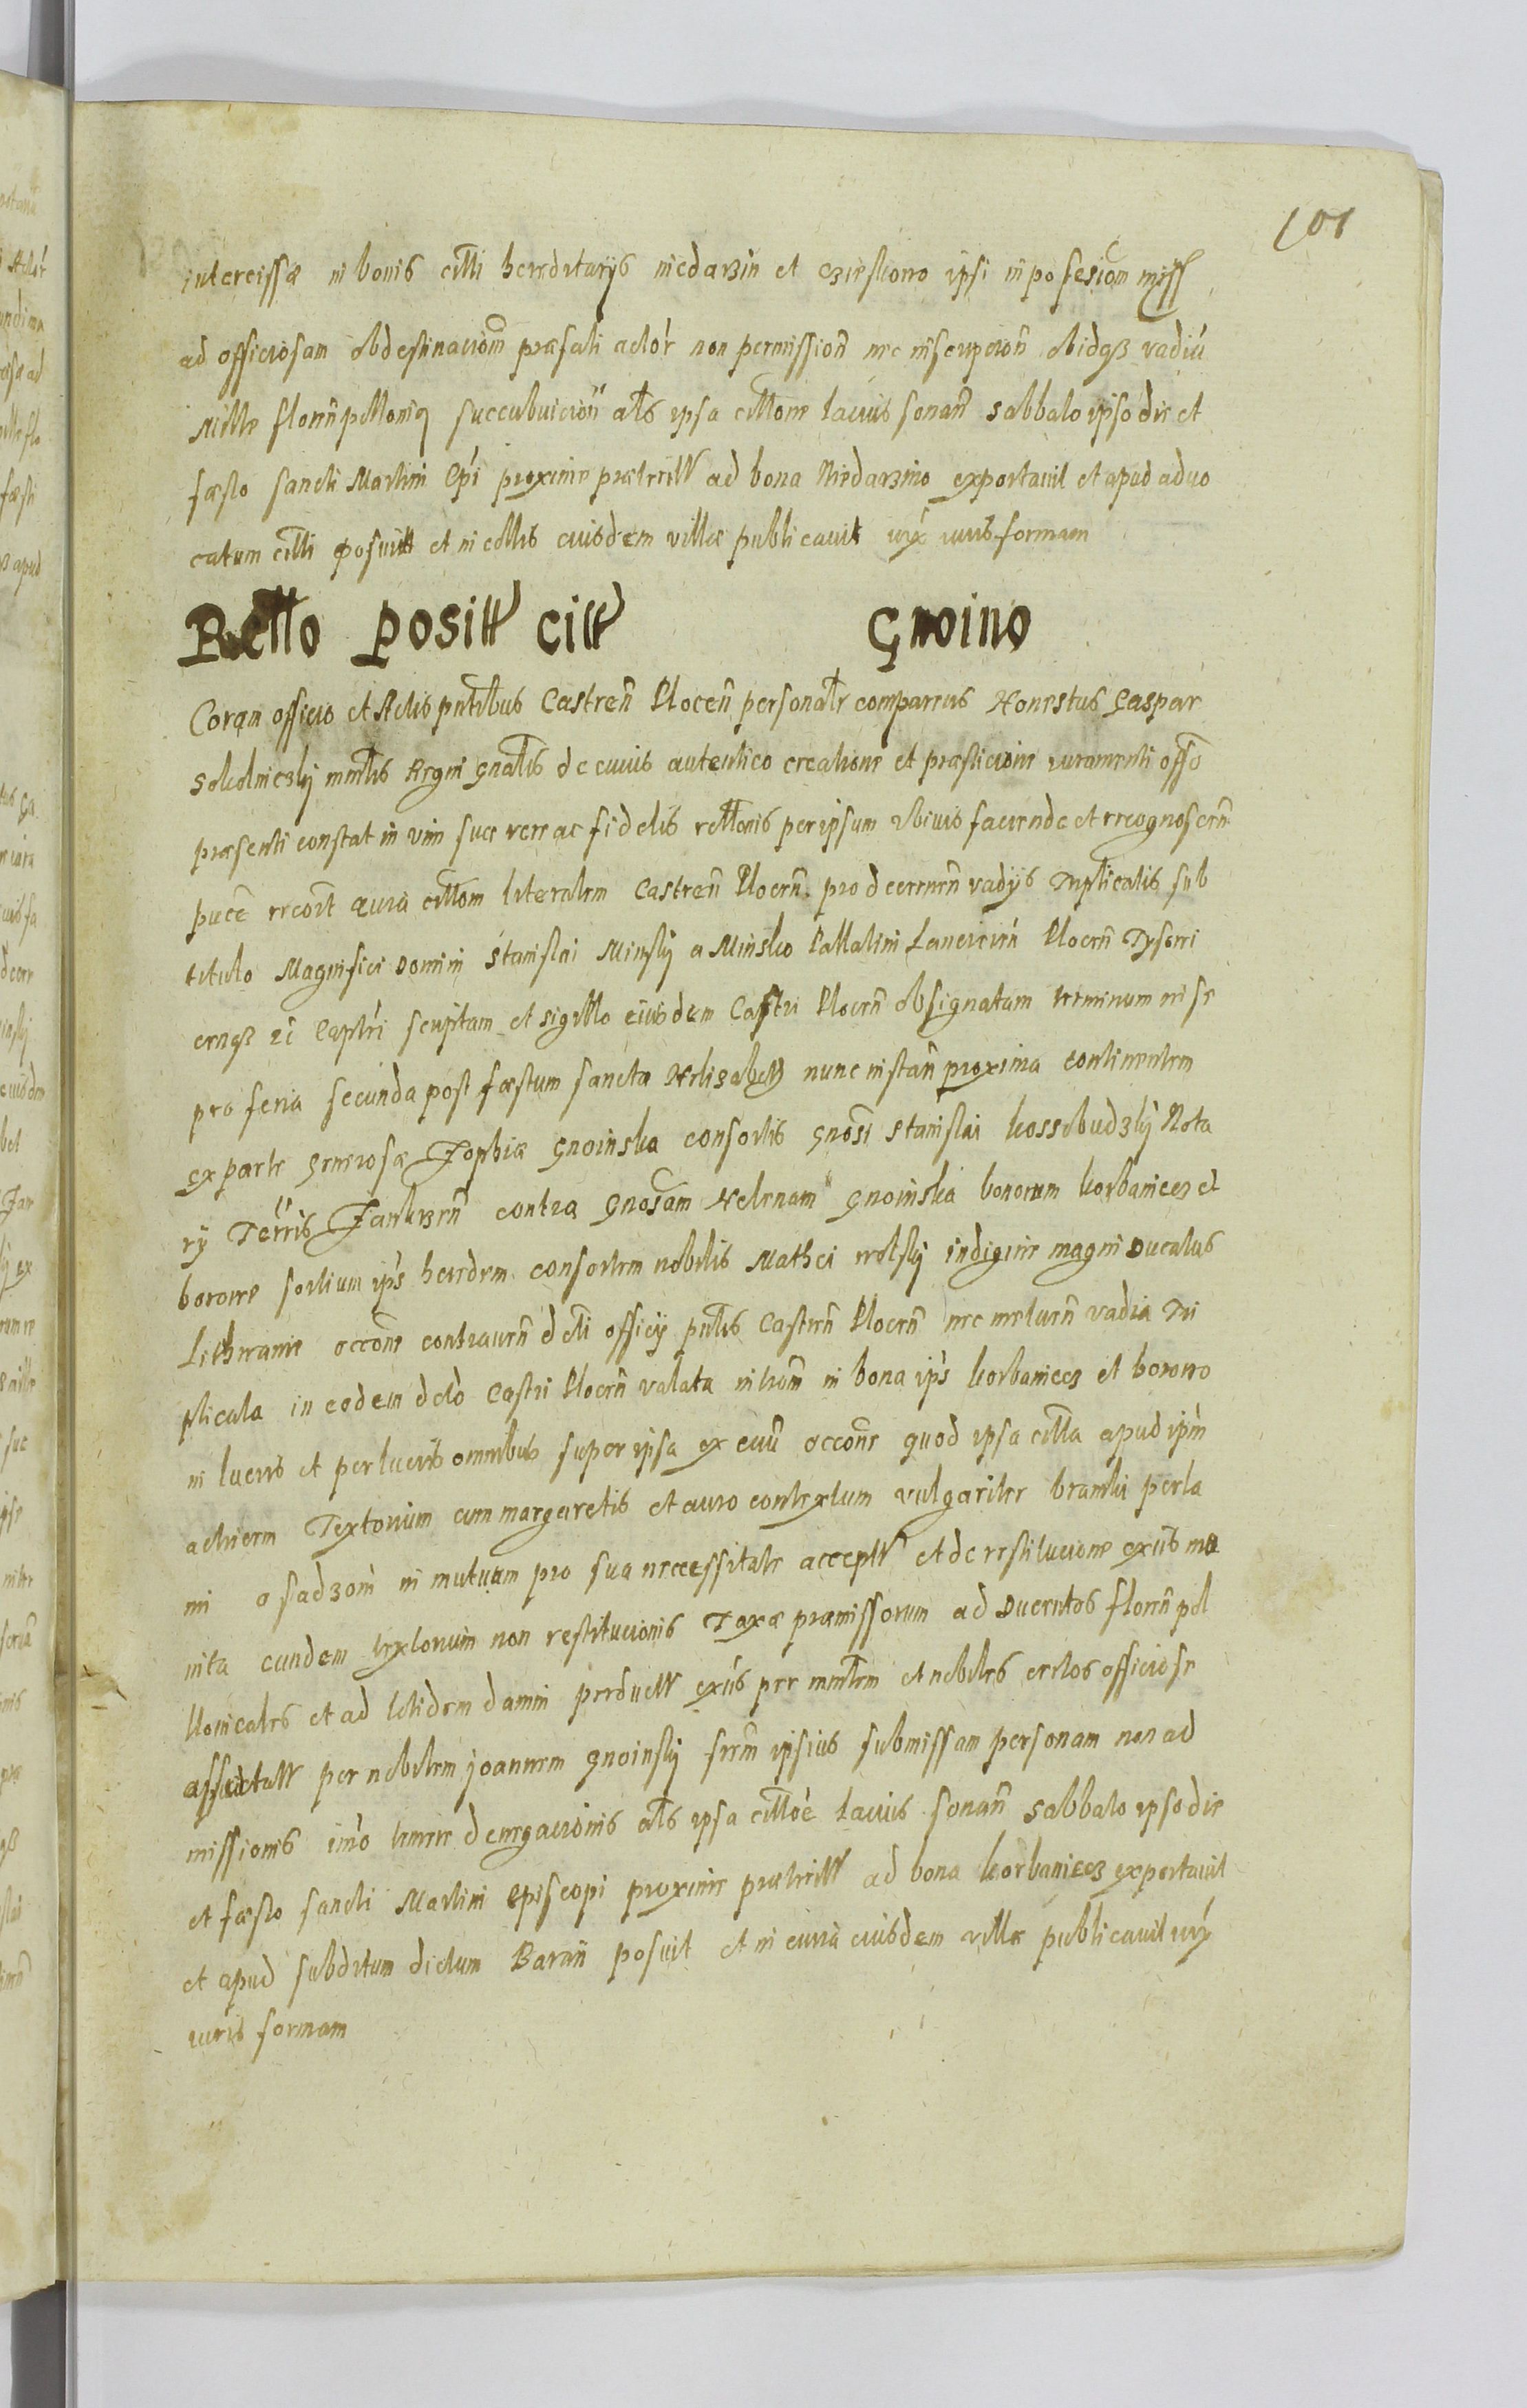 101
intercissæ in bonis citti hæreditariis niedarzin et ipsi in possesiom miss
ad officiosam obdestinaciom præfati actor non permission nec inscripcion obidqz vadiu
Mille floren pollonig succubuicion als ipsa cittone lacius sonan sabbato ipso die et
fæsto sancti Martini Epi proxime præteritt ad bona Niedarzino exportavit et apud advo
catum citti posuitt et in cittis eiusdem villæ publicavit iux iuris formam
Rcttio Positt citt Gnoino
Coram officio et Actis pntibus Castren Plocen personalr comparens Honestus Gaspar
mntlis Regni gnalis de cuius autentico creatione et præsticione iuramenti offo
præsenti constat in vim suæ veræ ac fidelis rettonis per ipsum faciende et recognoscen
pnce recoit quia cittom literalem Castren Plocen pro decernen vadiis Triplicatis sub
titulo Magnifici Domini Stanislai Minsky a Minsko Pallatini Lancicien Plocen
crnqz zc Captri scriptam et sigillo eiusdem Castri Plocen obsignatam terminum in se
pro feria secunda post fæstum sanctæ Helisabeth nunc instan proxima continentem
ex parte generosæ Zophiæ Gnoinska consortis gnosi Stanislai kossobudzky Nota
ry Terris contra Gnosam Helenam Gnoinska bonorum korbaniecz et
borowe sortium ips heredem consortem nobilis Mathei wolsky indigine magni Ducatus
Lithwanie occone contraven dcti officy pntis Castren Plocen nec metuen vadia Tri
plicata in eodem dcto Castri Plocen valata in bona ips korbaniecz et borowo
in lucris et perlucris omnibus super ipsa ex eiu occone quod ipsa citta apud ipm
actricem Textorium cum margaretis et auro contextum vulgariter bramki perla
mi osadzoni in mutuam pro sua necessitate acceptt et de restitucione exiis mo
nita eundem textorium non restitucionis Taxæ præmissorum ad Ducentos floren pol
lonicales et ad totidem damni perductt exiis per mntlem et nobiles certos officiose
affectatt per nobilem joannem gnoinsky frm ipsius submissam personam non ad
missionis imo temere denegacionis als ipsa cittoe lacius sonan sabbato ipso die
et fæsto sancti Martini Episcopi proxime præteritt ad bona korbaniecz exportavit
et apud subditum dictum Baran posuit et in curia eiusdem villæ publicavit iux
iuris formam